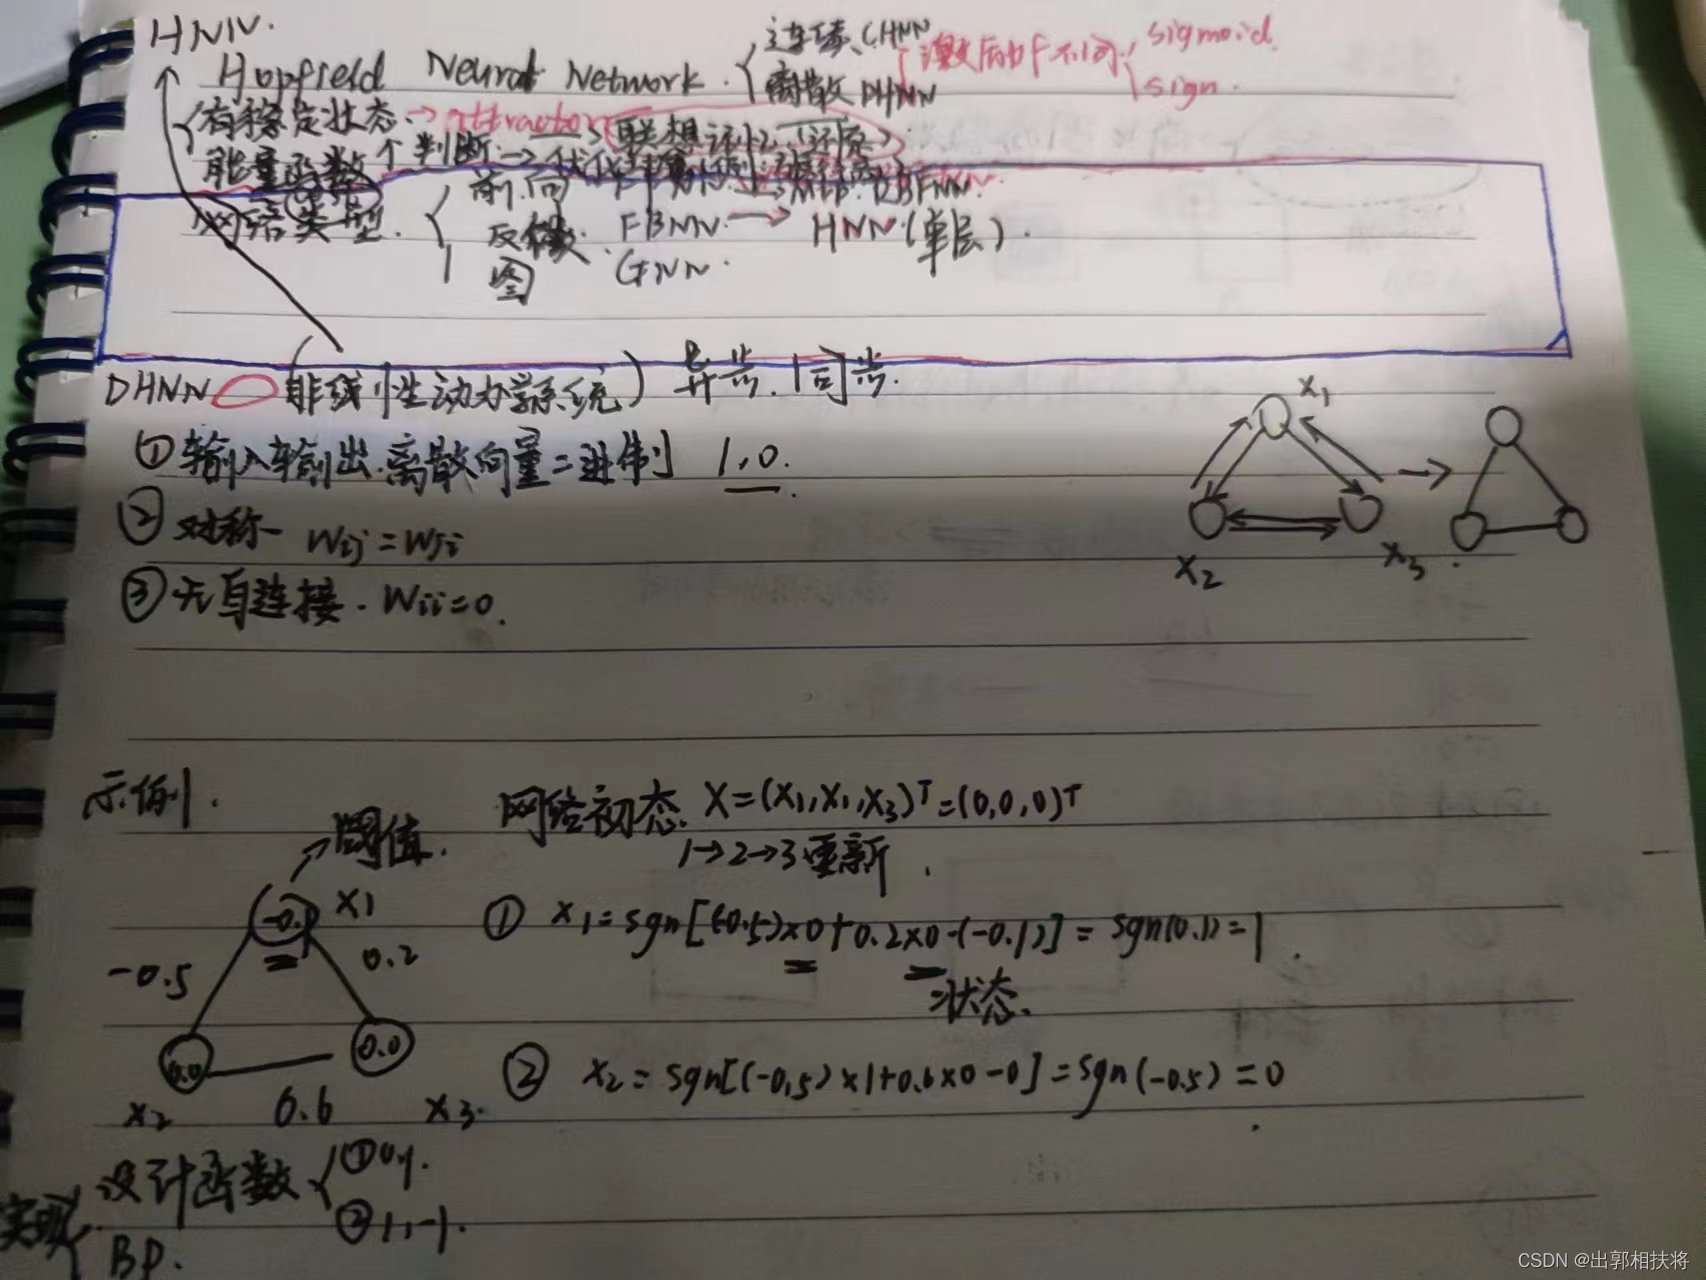 HNN.
Hopfield Neural Network. 连续、CHNN
离散 DHNN
激活f不同 sigmoid
sign.
有稳定状态 → attractor → 联想记忆(还原)
能量函数 个判断 →
网络类型.
前向
反馈. FBNN → HNN(单层).
图 GNN.
DHNN (非线性动力学系统) 异步. 同步.
① 输入输出.离散向量二进制 1,0.
② 对称- Wij=Wji
③ 无自连接. Wii=0.
X1
X2
X3
示例.
阈值.
网络初态. X=(X1,X1,X3)ᵀ=(0,0,0)ᵀ
1→2→3更新.
-0.1 X1
-0.5
0.2
① X1=sgn[(-0.5)×0+0.2×0-(-0.1)]=sgn(0.1)=1.
=状态.
0.0
0.0
X2 0.6 X3.
② X2=sgn[(-0.5)×1+0.6×0-0]=sgn(-0.5)=0
实现
设计函数
① 0,1.
② 1,-1.
BP.
CSDN @出郭相扶将